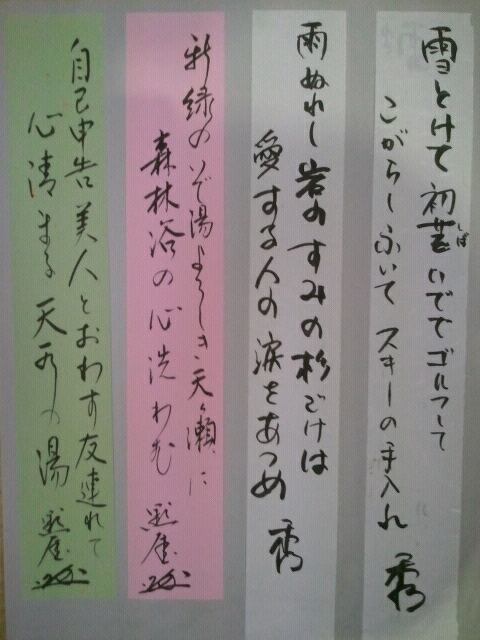 雪とけて初芝いでてゴルフして
しば
こがらしふいてスキーの手入れ
秀
雨ぬれし岩のすみの杉ごけは
愛する人の涙をあつめ
秀
新緑のいで湯よろしき天ヶ瀬に
森林浴の心洗わむ
自己申告美人とおわす友連れて
心清まる天ヶの湯